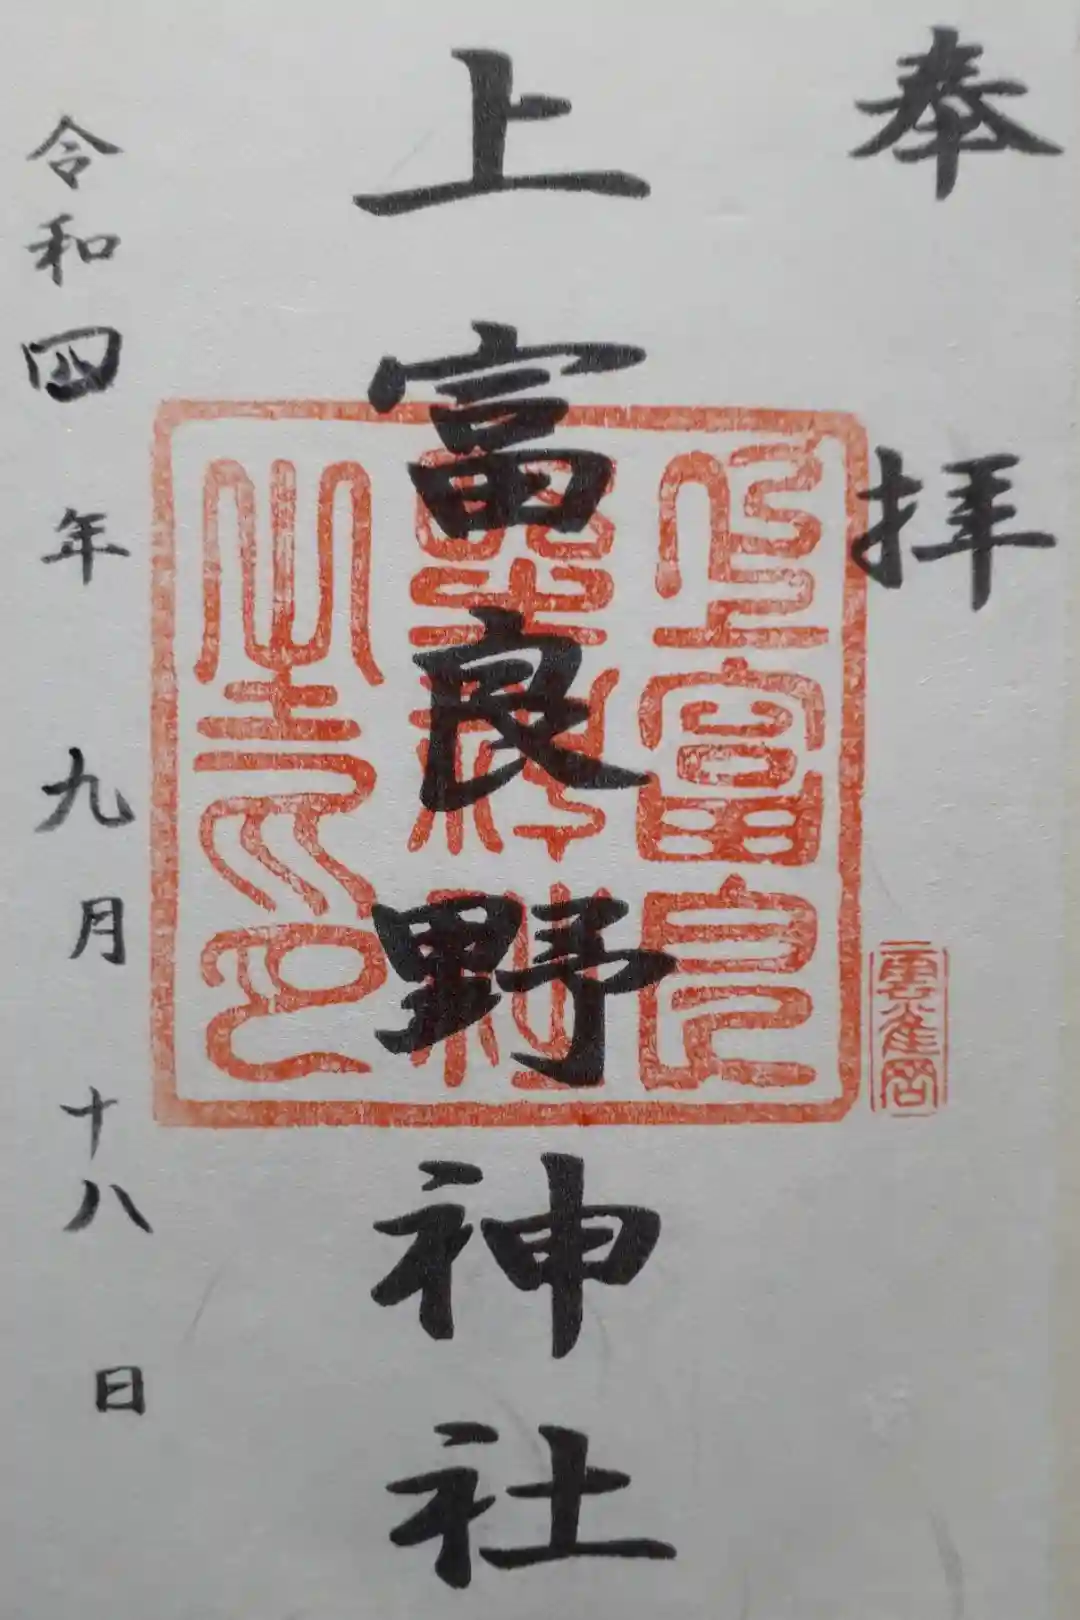 奉拝
上富良野神社
上富良
野神社
之印
令和四年九月十八日